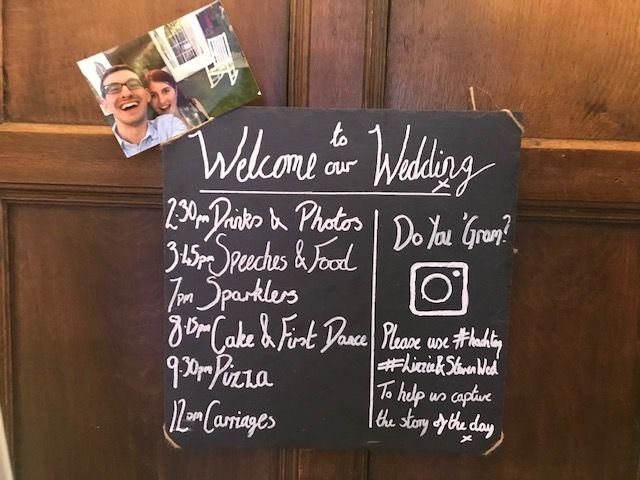 Welcome to our Wedding
2.30pm Drinks & Photos
3.45pm Speeches & Food
7pm Sparklers
8.15pm Cake & First Dance
9.30pm Pizza
12am Carriages
Do You 'Gram?
Please use #hashtag
#Lizzie&StevenWed
To help us capture
the story of the day
x